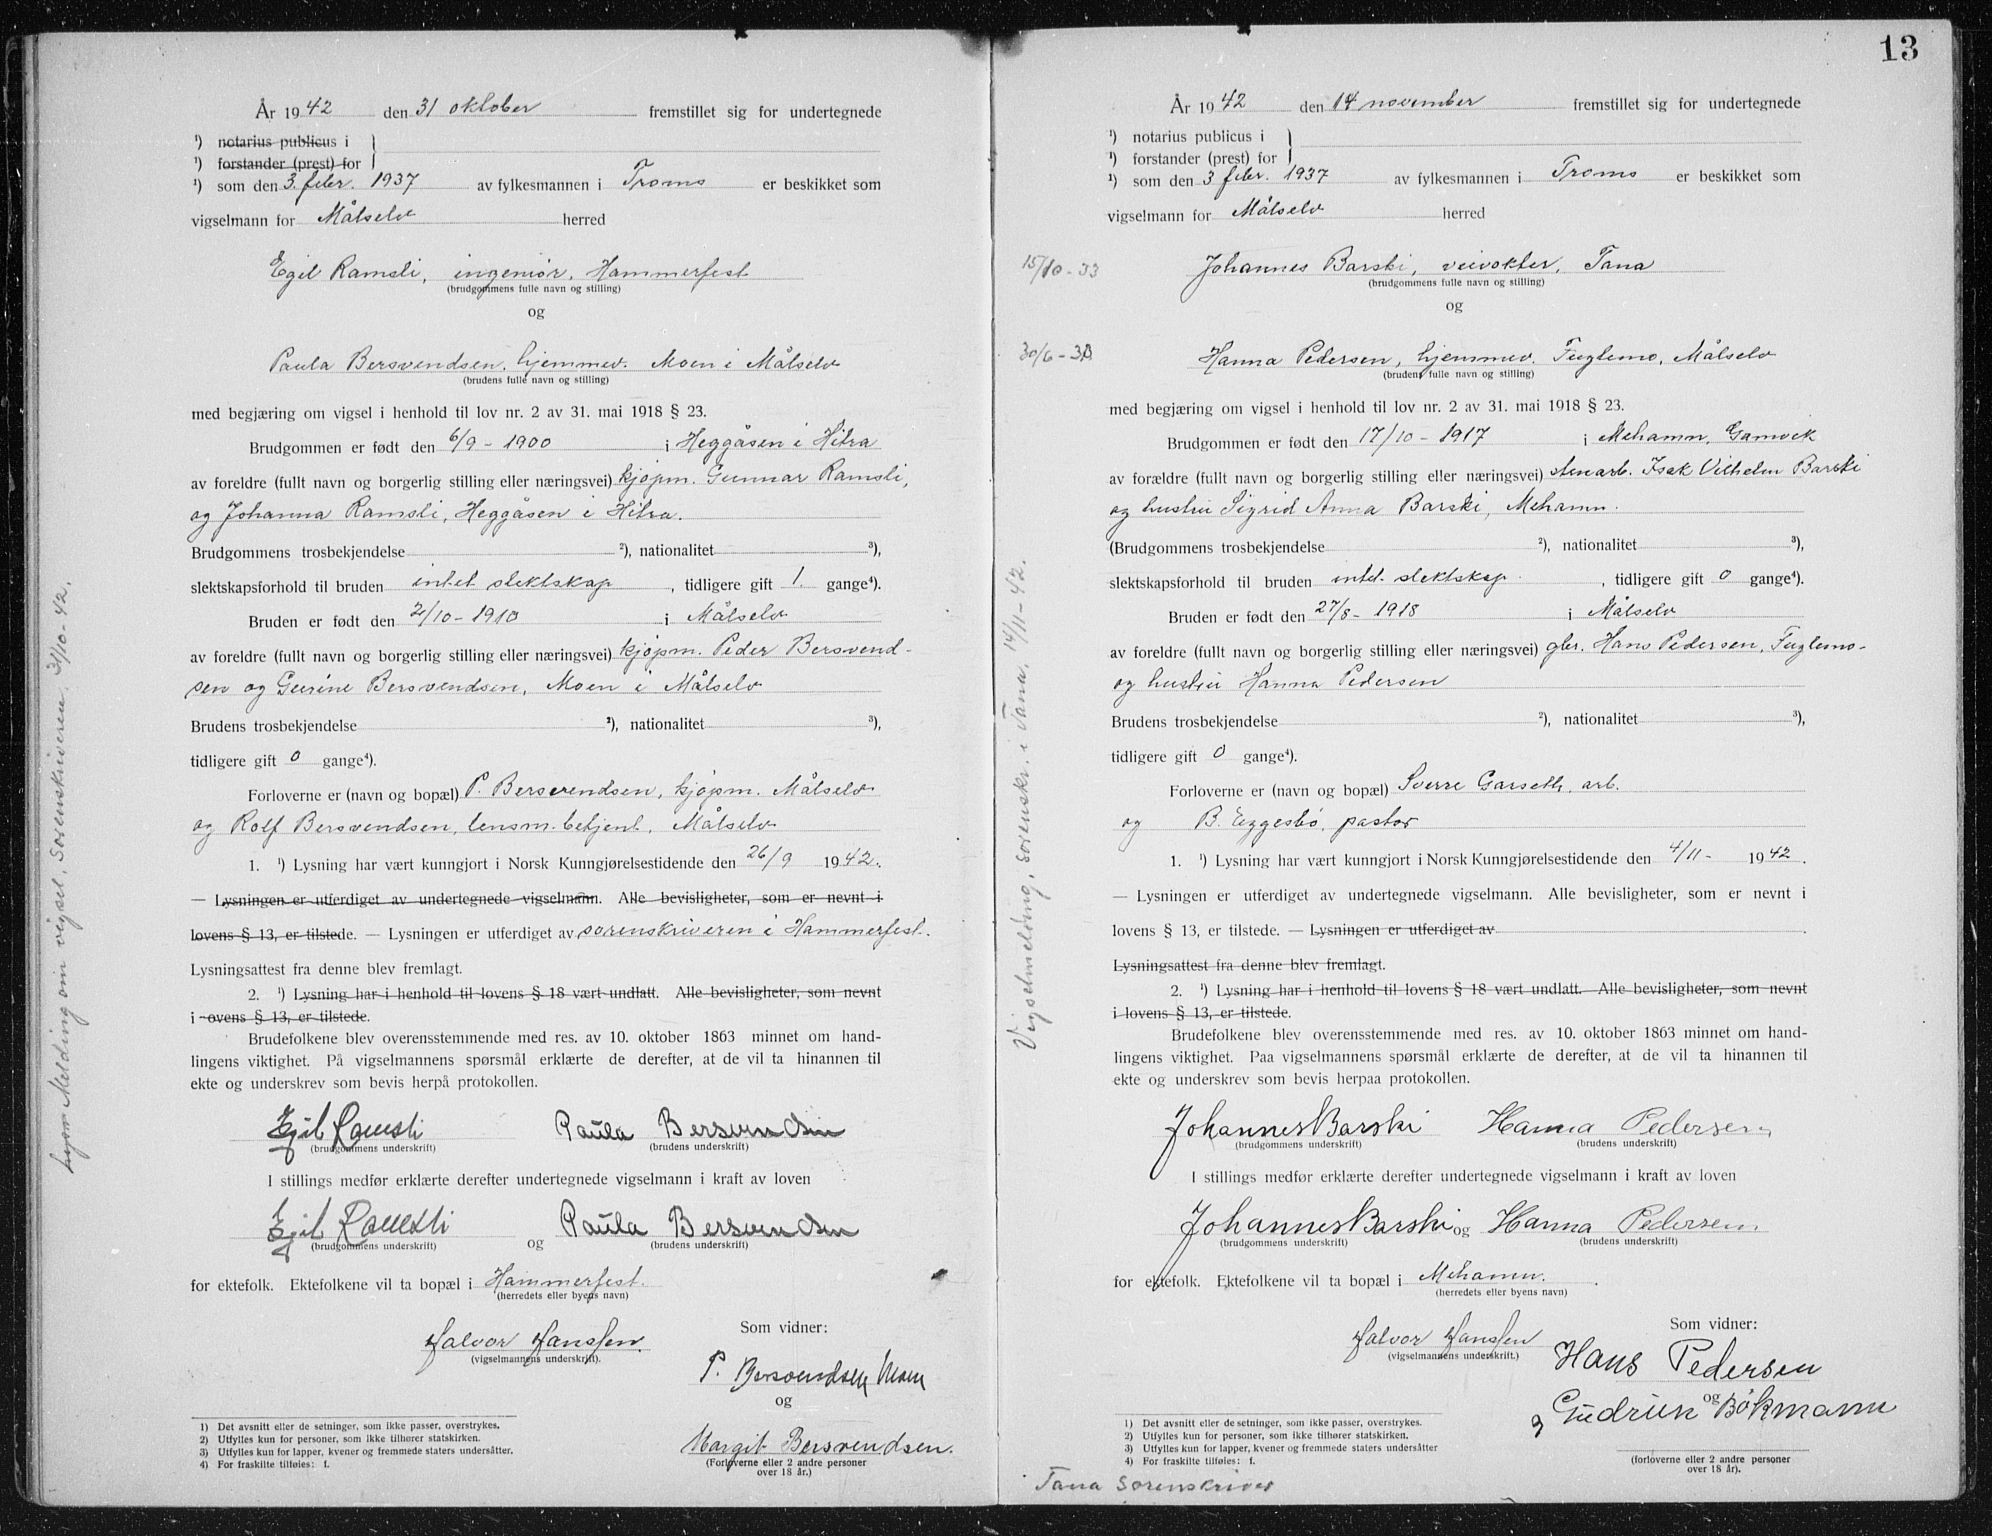 År 1942 den 31 oktober fremstillet sig for undertegnede
¹) notarius publicus i
¹) forstander (prest) for
¹) som den 3. febr. 1937 av fylkesmannen i Troms er beskikket som
vigselmann for Målselv herred
Egil Ramsli, ingeniør, Hammerfest
(brudgommens fulle navn og stilling)
og
Paula Bersvendsen, hjemmev. Moen i Målselv
(brudens fulle navn og stilling)
med begjæring om vigsel i henhold til lov nr. 2 av 31. mai 1918 § 23.
Brudgommen er født den 6/9 - 1900 i Heggåsen i Hitra
av foreldre (fullt navn og borgerlig stilling eller næringsvei) kjøpm. Gunnar Ramsli,
og Johanna Ramsli, Heggåsen i Hitra.
Brudgommens trosbekjendelse ²), nationalitet ³),
slektskapsforhold til bruden intet slektskap, tidligere gift 1. gange⁴).
Bruden er født den 2/10 - 1910 i Målselv
av foreldre (fullt navn og borgerlig stilling eller næringsvei) kjøpm. Peder Bersvend-
sen og Gurine Bersvendsen, Moen i Målselv
Brudens trosbekjendelse ²), nationalitet ³),
tidligere gift 0 gange⁴).
Forloverne er (navn og bopæl) P. Bersvendsen, kjøpm. Målselv
og Rolf Bersvendsen, lensm.betjent, Målselv
1. ¹) Lysning har vært kunngjort i Norsk Kunngjørelsestidende den 26/9 1942.
— Lysningen er utferdiget av undertegnede vigselmann. Alle bevisligheter, som er nevnt i
lovens § 13, er tilstede. — Lysningen er utferdiget av sorenskriveren i Hammerfest.
Lysningsattest fra denne blev fremlagt.
2. ¹) Lysning har i henhold til lovens § 18 vært undlatt. Alle bevisligheter, som nevnt
i ovens § 13, er tilstede.
Brudefolkene blev overensstemmende med res. av 10. oktober 1863 minnet om hand-
lingens viktighet. På vigselmannens spørsmål erklærte de derefter, at de vil ta hinannen til
ekte og underskrev som bevis herpå protokollen.
Egil Ramsli Paula Bersvendsen
(brudgommens underskrift) (brudens underskrift)
I stillings medfør erklærte derefter undertegnede vigselmann i kraft av loven
Egil Ramsli og Paula Bersvendsen
(brudgommens underskrift) (brudens underskrift)
for ektefolk. Ektefolkene vil ta bopæl i Hammerfest.
(herredets eller byens navn)
Halvor Hanssen.
(vigselmannens underskrift).
Som vidner:
P. Bersvendsen Moen
og
Margit Bersvendsen.
(Forloverne eller 2 andre personer
over 18 år.)
1) Det avsnitt eller de setninger, som ikke passer, overstrykes.
2) Utfylles kun for personer, som ikke tilhører statskirken.
3) Utfylles kun for lapper, kvener og fremmede staters undersåtter.
4) For fraskilte tilføies: f.
Melding om vigsel, sorenskriveren 31/10-42.
13
År 1942 den 14 november fremstillet sig for undertegnede
¹) notarius publicus i
¹) forstander (prest) for
¹) som den 3 febr. 1937 av fylkesmannen i Troms er beskikket som
vigselmann for Målselv herred
15/10 - 33
Johannes Barski, veivokter, Tana
(brudgommens fulle navn og stilling)
og
30/6 - 33
Hanna Pedersen, hjemmev. Fuglemo, Målselv
(brudens fulle navn og stilling)
med begjæring om vigsel i henhold til lov nr. 2 av 31. mai 1918 § 23.
Brudgommen er født den 17/10 - 1917 i Mehamn, Gamvik
av forældre (fullt navn og borgerlig stilling eller næringsvei) stenarb. Isak Vilhelm Barski
og hustru Sigrid Anna Barski, Mehamn.
(Brudgommens trosbekjendelse ²), nationalitet ³),
slektskapsforhold til bruden intet slektskap. , tidligere gift 0 gange⁴).
Bruden er født den 27/8 - 1918 i Målselv
av foreldre (fullt navn og borgerlig stilling eller næringsvei) gbr. Hans Pedersen, Fuglemo-
og hustru Hanna Pedersen
Brudens trosbekjendelse ²), nationalitet ³),
tidligere gift 0 gange⁴).
Forloverne er (navn og bopæl) Sverre Garseth, arb.
og B. Eggesbö, pastor
1. ¹) Lysning har vært kunngjort i Norsk Kunngjørelsestidende den 4/11 - 1942.
— Lysningen er utferdiget av undertegnede vigselmann. Alle bevisligheter, som er nevnt i
lovens § 13, er tilstede. — Lysningen er utferdiget av
Lysningsattest fra denne blev fremlagt.
2. ¹) Lysning har i henhold til lovens § 18 vært undlatt. Alle bevisligheter, som nevnt
i lovens § 13, er tilstede.
Brudefolkene blev overensstemmende med res. av 10. oktober 1863 minnet om hand-
lingens viktighet. Paa vigselmannens spørsmål erklærte de derefter, at de vil ta hinannen til
ekte og underskrev som bevis herpaa protokollen.
Johannes Barski Hanna Pedersen
(brudgommens underskrift) (brudens underskrift)
I stillings medfør erklærte derefter undertegnede vigselmann i kraft av loven
Johannes Barski og Hanna Pedersen
(brudgommens underskrift) (brudens underskrift)
for ektefolk. Ektefolkene vil ta bopæl i Mehamn.
(herredets eller byens navn)
Halvor Hanssen
(vigselmannens underskrift.)
Som vidner:
Hans Pedersen
og
Gudrun Bökmann
(forloverne eller 2 andre personer
over 18 år).
1) Det avsnitt eller de setninger, som ikke passer, overstrykes.
2) Utfylles kun for personer, som ikke tilhører statskirken.
3) Utfylles kun for lapper, kvener og fremmede staters undersåtter
4) For fraskilte tilføies: f.
Vigselmelding, sorenskr. i Tana, 14/11-42.
Tana Sorenskriver